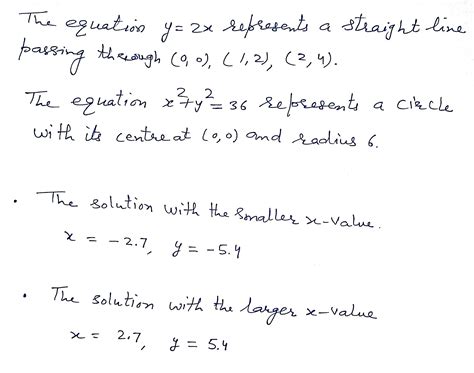 The equation y = 2x represents a straight line
passing through (0,0), (1,2), (2,4).
The equation x²+y² = 36 represents a circle
with its centre at (0,0) and radius 6.
• The solution with the smaller x-value.
x = -2.7, y = -5.4
• The solution with the larger x-value
x = 2.7, y = 5.4